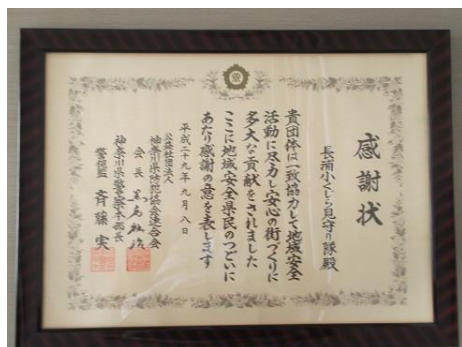 感謝状
長浦小くじら見守り隊殿
貴団体は一致協力して地域安全
活動に尽力し安心の街づくりに
多大な貢献をされました
ここに地域安全県民のつどいに
あたり感謝の意を表します
平成二十九年九月八日
公益社団法人
神奈川県防犯協会連合会
会長
神奈川県警察本部長
警視監 斉藤実